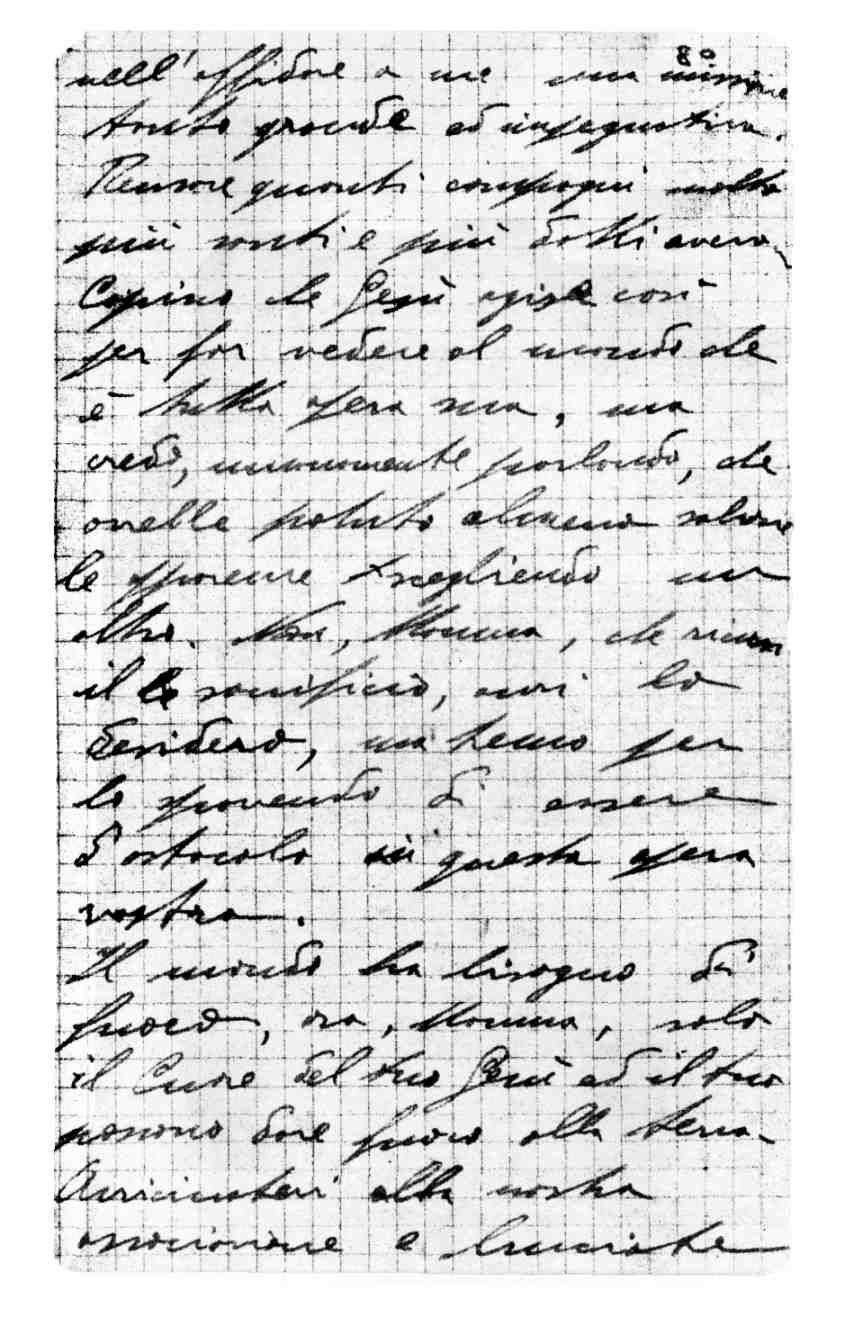 80
nell'affidare a me una missione
tanto grande ed impegnativa.
Pensare quanti compagni molto
più santi e più dotti avevo.
Capisco che Gesù agisce così
per far vedere al mondo che
è tutta opera sua, ma
credo, umanamente parlando, che
avrebbe potuto almeno salvare
le apparenze scegliendo un
altro. Non, Mamma, che ricusi
il sacrificio, anzi lo
desidero, ma temo per
lo spavendo di essere
d'ostacolo in questa opera
vostra.
Il mondo ha bisogno di
fuoco, ora, Mamma, solo
il Cuore del tuo Gesù ed il tuo
possono dare fuoco alla terra.
Avvicinatevi alla nostra
associazione e bruciate